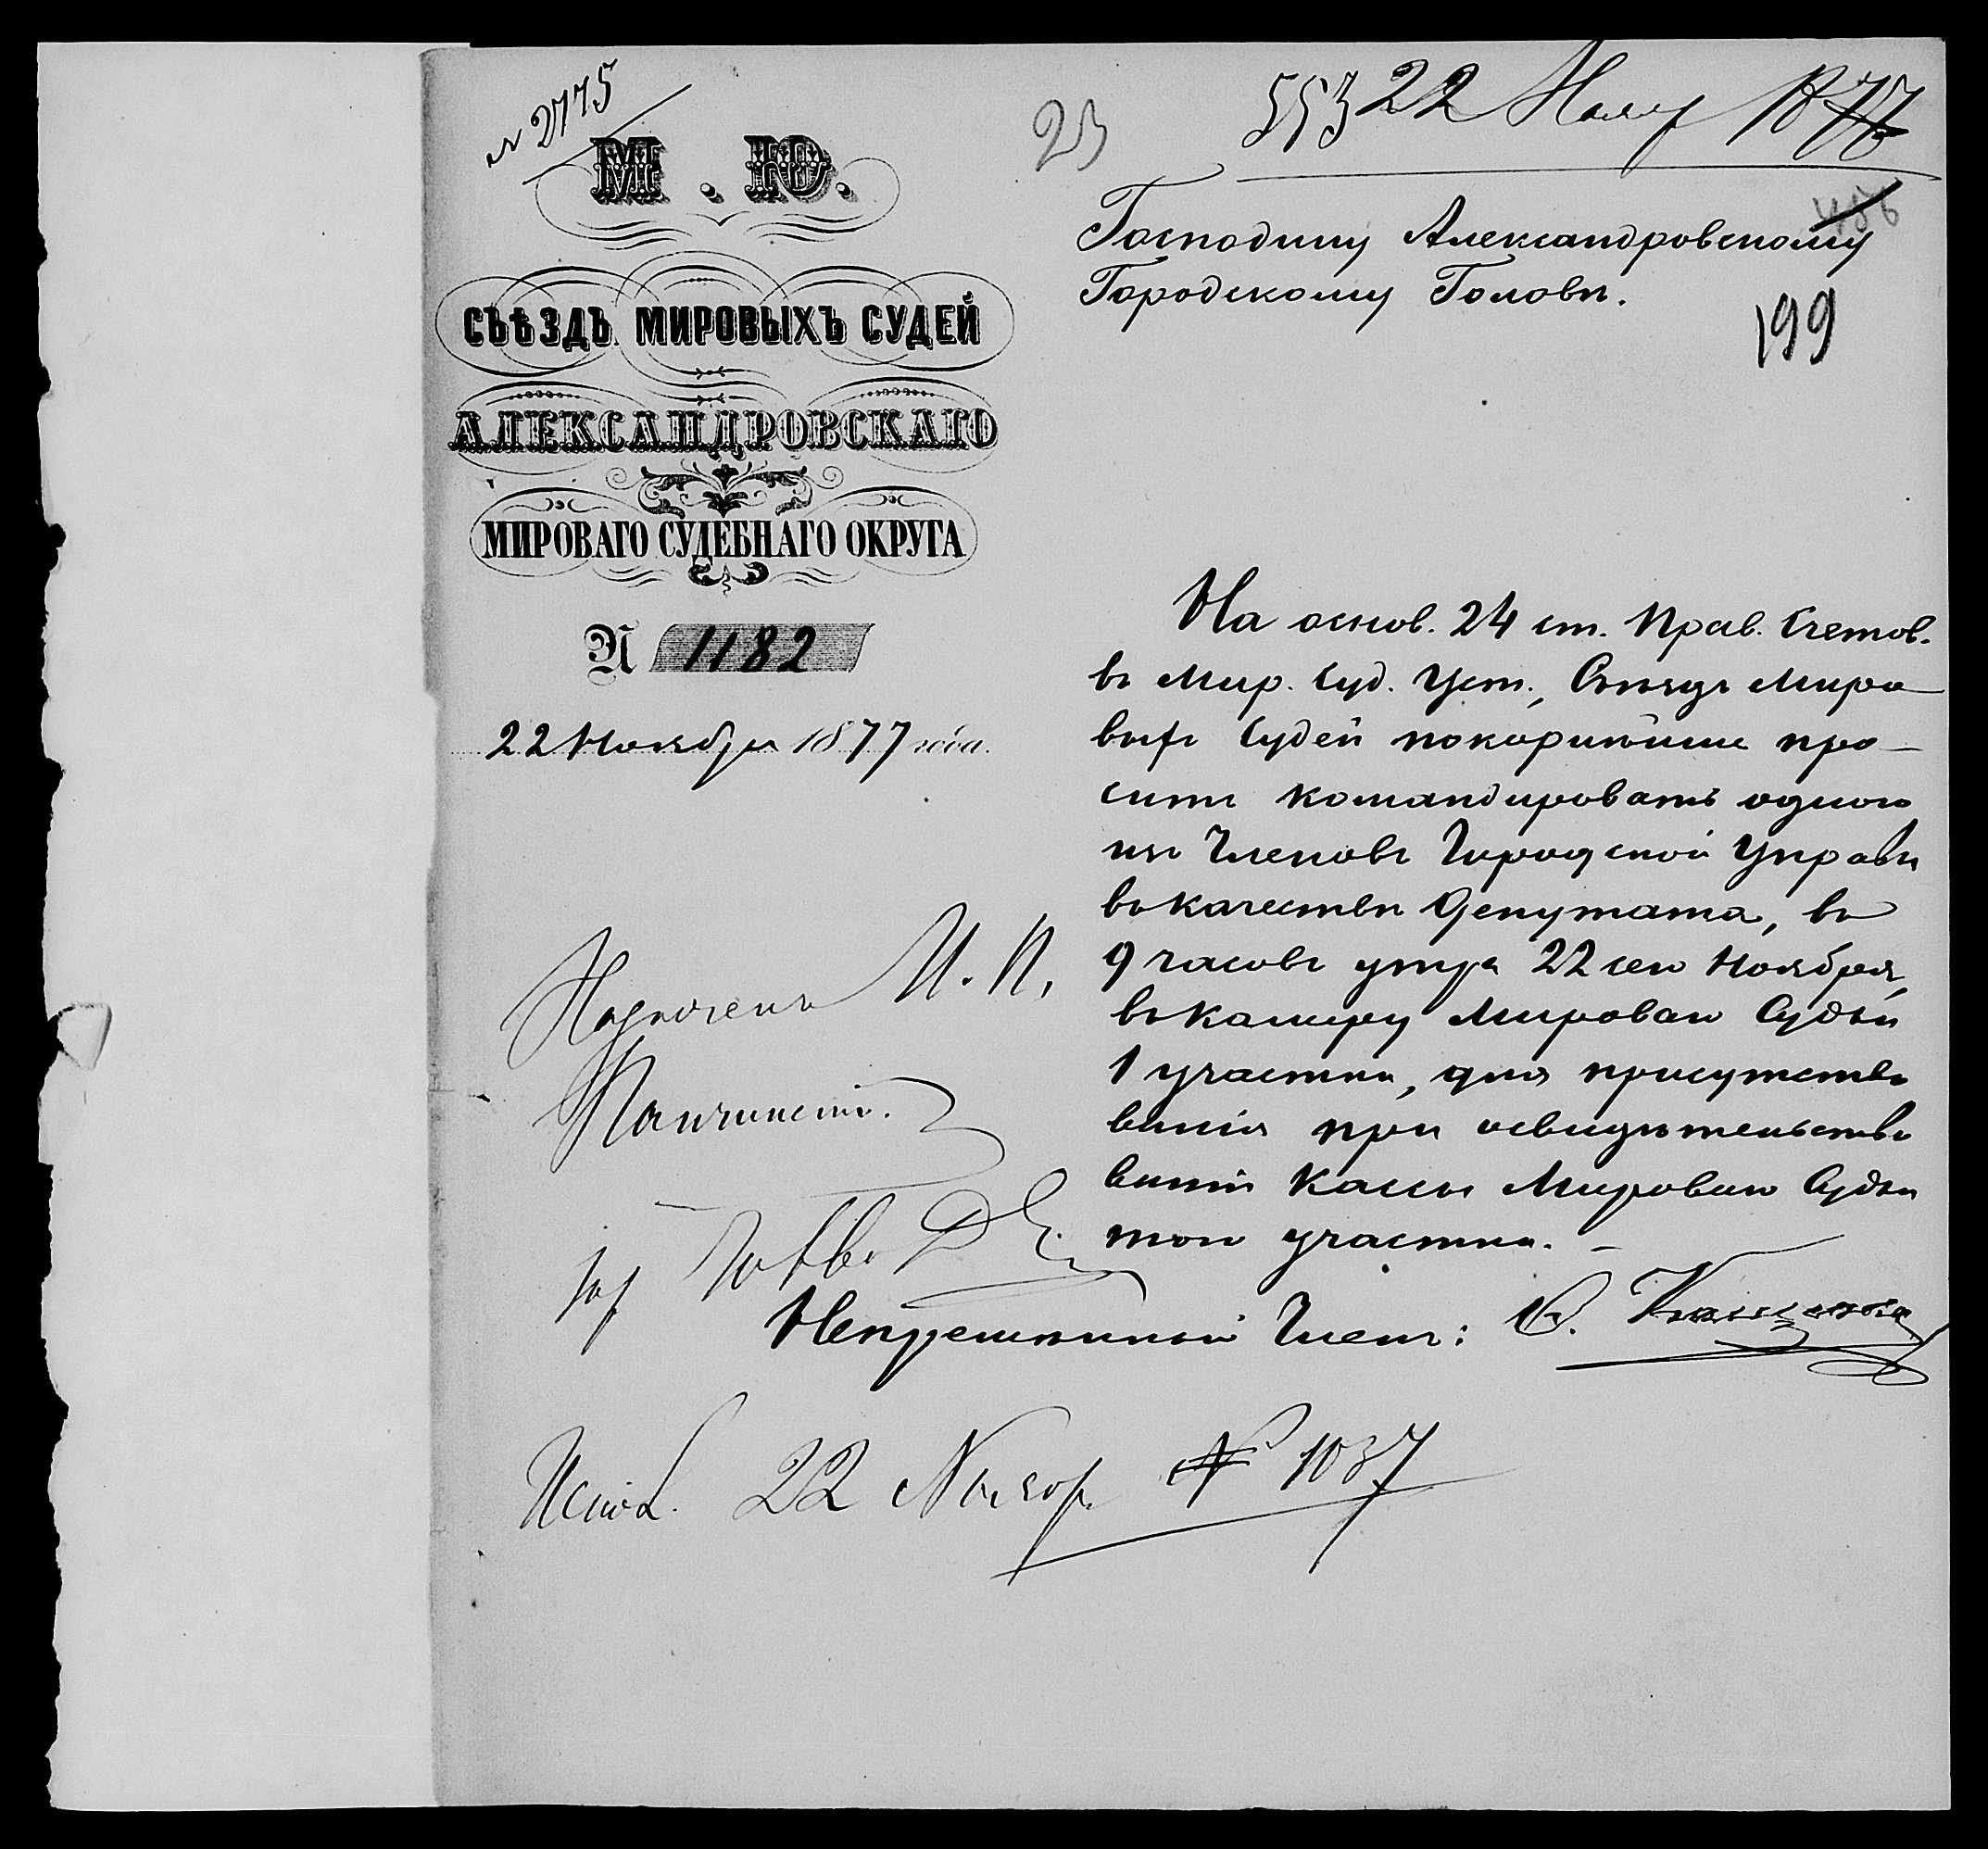 № 2775
23
553 22 Нояб 1877
М. Ю.
Господину Александровскому
Городскому Головѣ.
199
СЪѢЗДЪ МИРОВЫХЪ СУДЕЙ
АЛЕКСАНДРОВСКАГО
МИРОВАГО СУДЕБНАГО ОКРУГА
№ 1182
22 Ноября 1877 года.
На основ. 24 ст. Прав. Счетов.
въ Мир. Суд. Уст., Съѣздъ Миро
выхъ Судей покорнѣйше про-
ситъ командировать одного
изъ Членовъ Городской Управы
въ качествѣ Депутата, въ
9 часовъ утра 22 сего Ноября,
въ камеру Мироваго Судьи
1 участка, для присутство
ванія при освидѣтельство
ваніи кассы Мироваго Судьи
того участка. -
Назначенъ И. П.
Непремѣнный Членъ:
Испол. 22 Нояб. № 1037